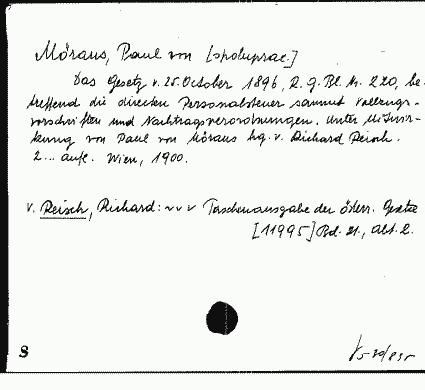 Möraus, Paul von [spoluprac.]
Das Gesetz v. 25. October 1896, R. G. Bl. Nr. 220, be-
treffend die direkten Personalsteuer sammt Vollzugs-
vorschriften und Nachtragsverordnungen. Unter Mitwir-
kung von Paul von Möraus hg. v. Richard Reisch.
2... Aufl. Wien, 1900.
v. Reisch, Richard: ~ ~ ~ Taschenausgabe der österr. Gesetze
[11995] Bd. 21., Abt. 2.
8